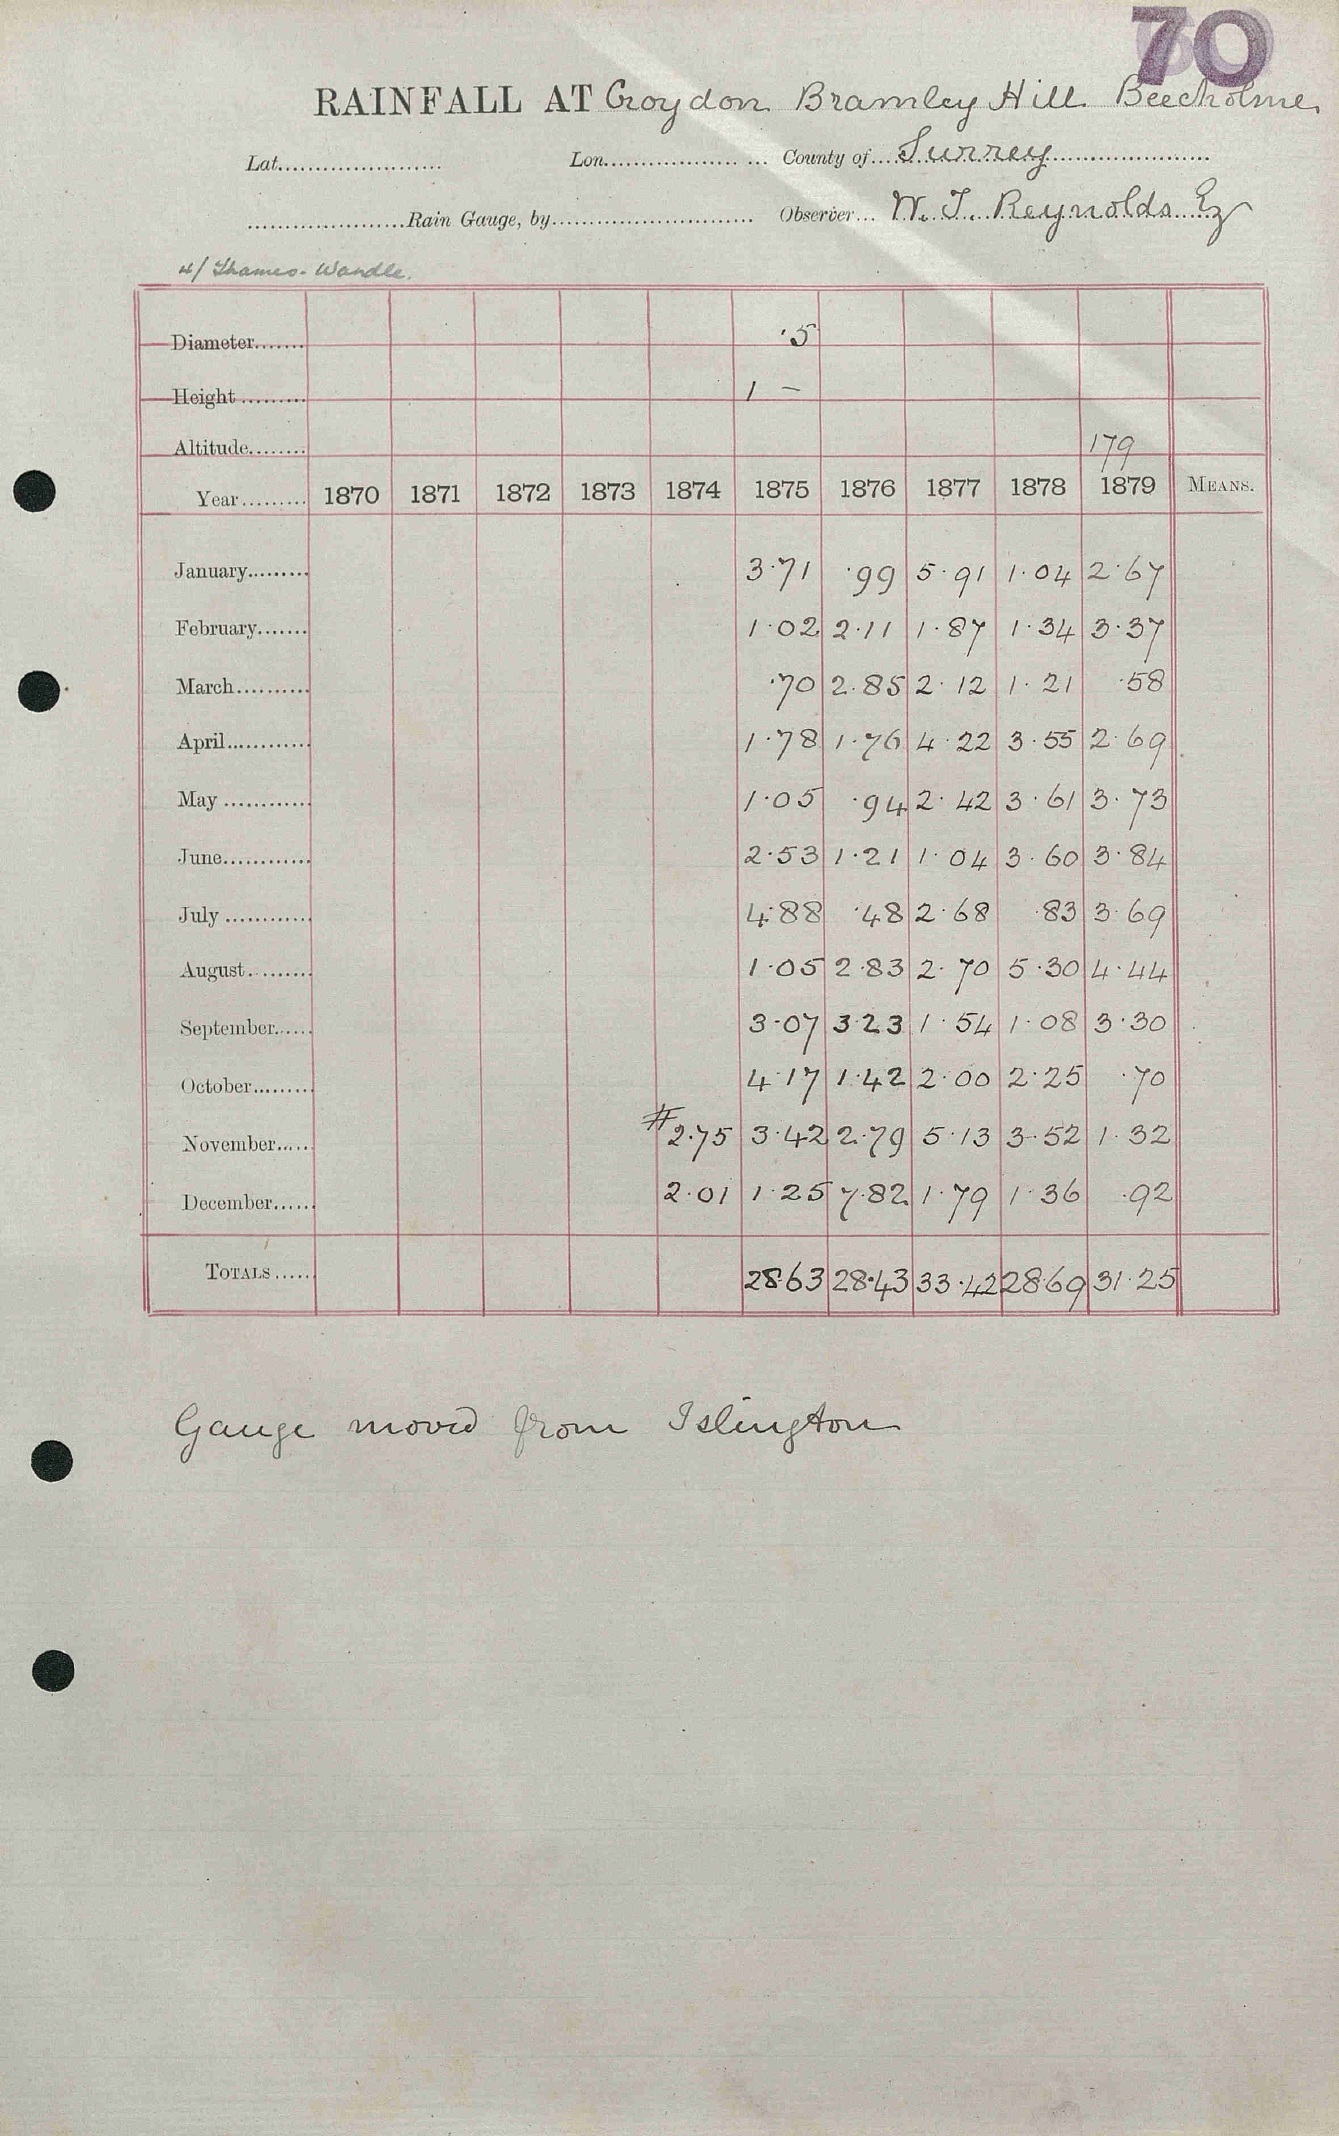 70
RAINFALL AT Croydon Bramley Hill Beecholme
Lat. Lon. County of Surrey
Rain Gauge, by Observer W. T. Reynolds Esq
4/ Thames - Wandle.
Diameter ·5
Height 1 –
Altitude 179
Year 1870 1871 1872 1873 1874 1875 1876 1877 1878 1879 MEANS.
January 3·71 ·99 5·91 1·04 2·67
February 1·02 2·11 1·87 1·34 3·37
March ·70 2·85 2·12 1·21 ·58
April 1·78 1·76 4·22 3·55 2·69
May 1·05 ·94 2·42 3·61 3·73
June 2·53 1·21 1·04 3·60 3·84
July 4·88 ·48 2·68 ·83 3·69
August 1·05 2·83 2·70 5·30 4·44
September 3·07 3·23 1·54 1·08 3·30
October 4·17 1·42 2·00 2·25 ·70
November #2·75 3·42 2·79 5·13 3·52 1·32
December 2·01 1·25 7·82 1·79 1·36 ·92
TOTALS 28·63 28·43 33·42 28·69 31·25
Gauge moved from Islington